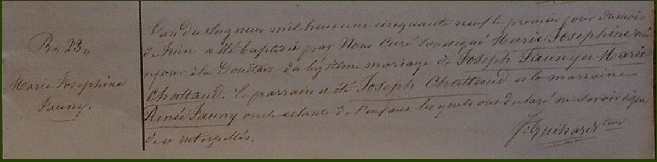 Bn 23n
Marie Josephine
Fauny.
L'an du Seigneur mil huit cent cinquante neuf le premier jour du mois
de Juin a été baptisée par Nous Curé soussigné Marie Josephine né
ce jour à la du légitime mariage de Joseph Fauny & Marie
Chattaud. Le parrain a été Joseph Chattaud et la marraine
Renée Fauny oncle et tante de l'enfant, lesquels ont déclaré ne savoir signer
de ce interpellés.
J. Guihard